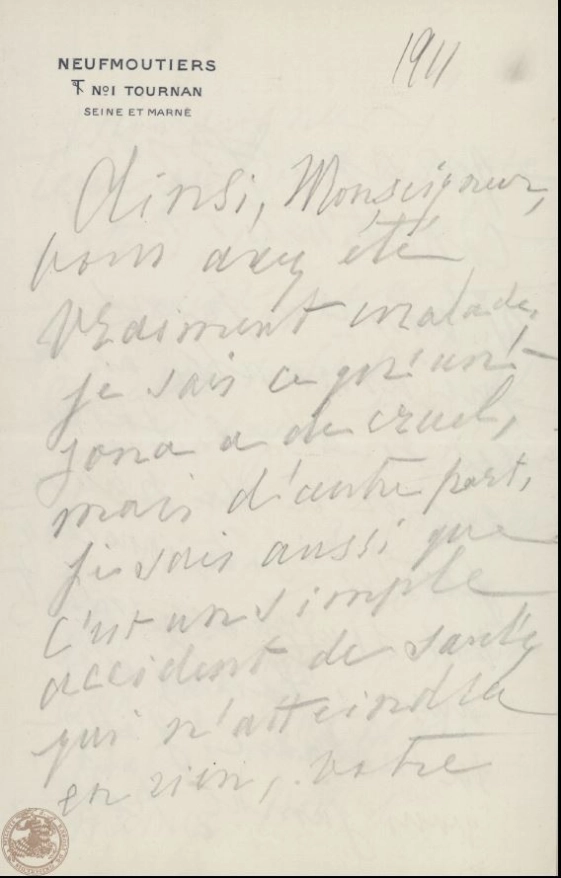 NEUFMOUTIERS
No1 TOURNAN
SEINE ET MARNE
1911
Ainsi, Monseigneur,
vous avez été
vraiment malade,
je sais ce qu'un
zona a de cruel,
mais d'autre part,
je sais aussi que
c'est un simple
accident de santé
qui n'atteindra
en rien, votre